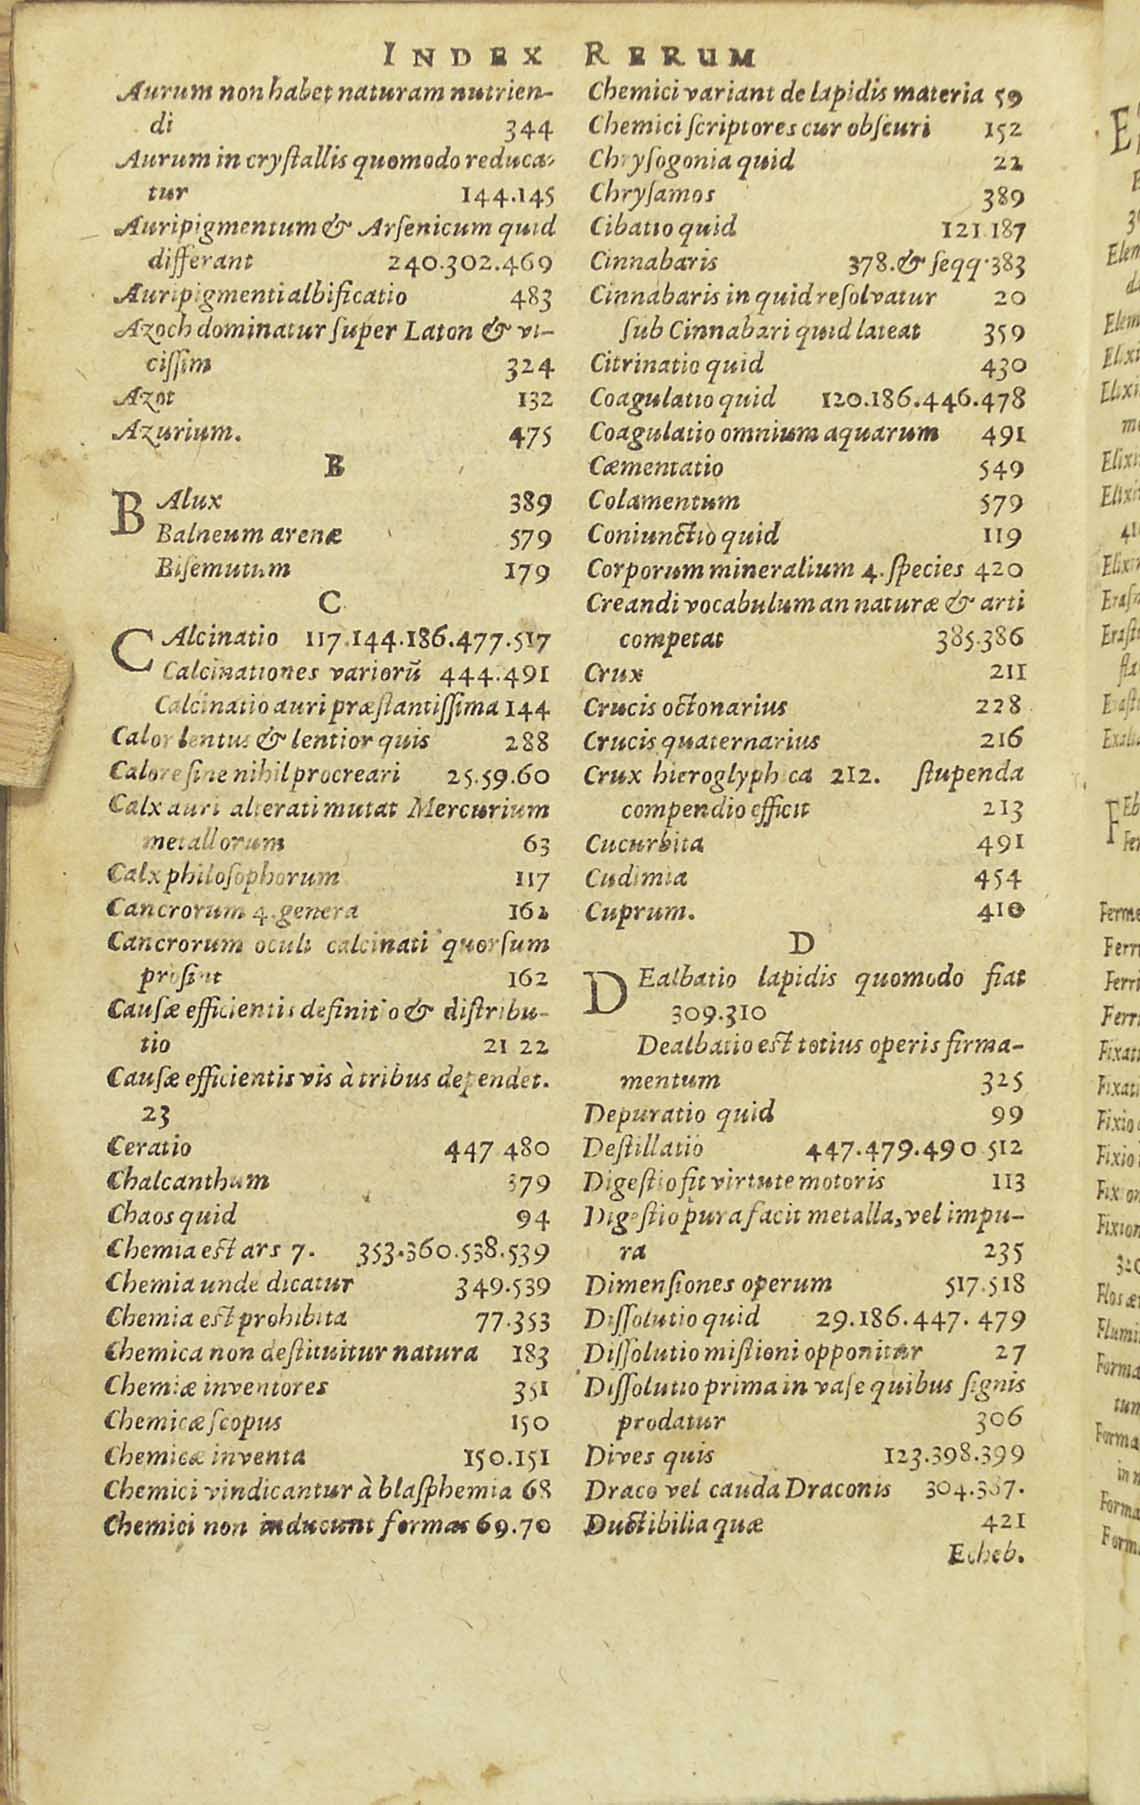 INDEX RERUM
Aurum non habet naturam nutrien-
di 344
Aurum in crystallis quomodo reduca-
tur 144.145
Auripigmentum & Arsenicum quid
differant 240.302.469
Auripigmenti albificatio 483
Azoch dominatur super Laton & vi-
cissim 324
Azot 132
Azurium. 475
B
BAlux 389
Balneum arenæ 579
Bisemutum 179
C
CAlcinatio 117.144.186.477.517
Calcinationes variorū 444.491
Calcinatio auri præstantissima 144
Calor lentus & lentior quis 288
Calore sine nihil procreari 25.59.60
Calx auri alterati mutat Mercurium
metallorum 63
Calx philosophorum 117
Cancrorum 4. genera 162
Cancrorum oculi calcinati quorsum
prosint 162
Causæ efficientis definitio & distribu-
tio 21 22
Causæ efficientis vis à tribus dependet.
23
Ceratio 447 480
Chalcanthum 379
Chaos quid 94
Chemia est ars 7. 353.360.538.539
Chemia unde dicatur 349.539
Chemia est prohibita 77.353
Chemica non destituitur natura 183
Chemiæ inventores 351
Chemicæ scopus 150
Chemicæ inventa 150.151
Chemici vindicantur à blasphemia 68
Chemici non inducunt formas 69.70
Chemici variant de lapidis materia 59
Chemici scriptores cur obscuri 152
Chrysogonia quid 22
Chrysamos 389
Cibatio quid 121.187
Cinnabaris 378. & seqq. 383
Cinnabaris in quid resolvatur 20
sub Cinnabari quid lateat 359
Citrinatio quid 430
Coagulatio quid 120.186.446.478
Coagulatio omnium aquarum 491
Cæmentatio 549
Colamentum 579
Coniunctio quid 119
Corporum mineralium 4. species 420
Creandi vocabulum an naturæ & arti
competat 385.386
Crux 211
Crucis octonarius 228
Crucis quaternarius 216
Crux hieroglyphica 212. stupenda
compendio efficit 213
Cucurbita 491
Cudimia 454
Cuprum. 410
D
DEalbatio lapidis quomodo fiat
309.310
Dealbatio est totius operis firma-
mentum 325
Depuratio quid 99
Destillatio 447.479.490 512
Digestio fit virtute motoris 113
Digestio pura facit metalla, vel impu-
ra 235
Dimensiones operum 517.518
Dissolutio quid 29.186.447. 479
Dissolutio mistioni opponitur 27
Dissolutio prima in vase quibus signis
prodatur 306
Dives quis 123.398.399
Draco vel cauda Draconis 304.367.
Ductibilia quæ 421
Echeb.